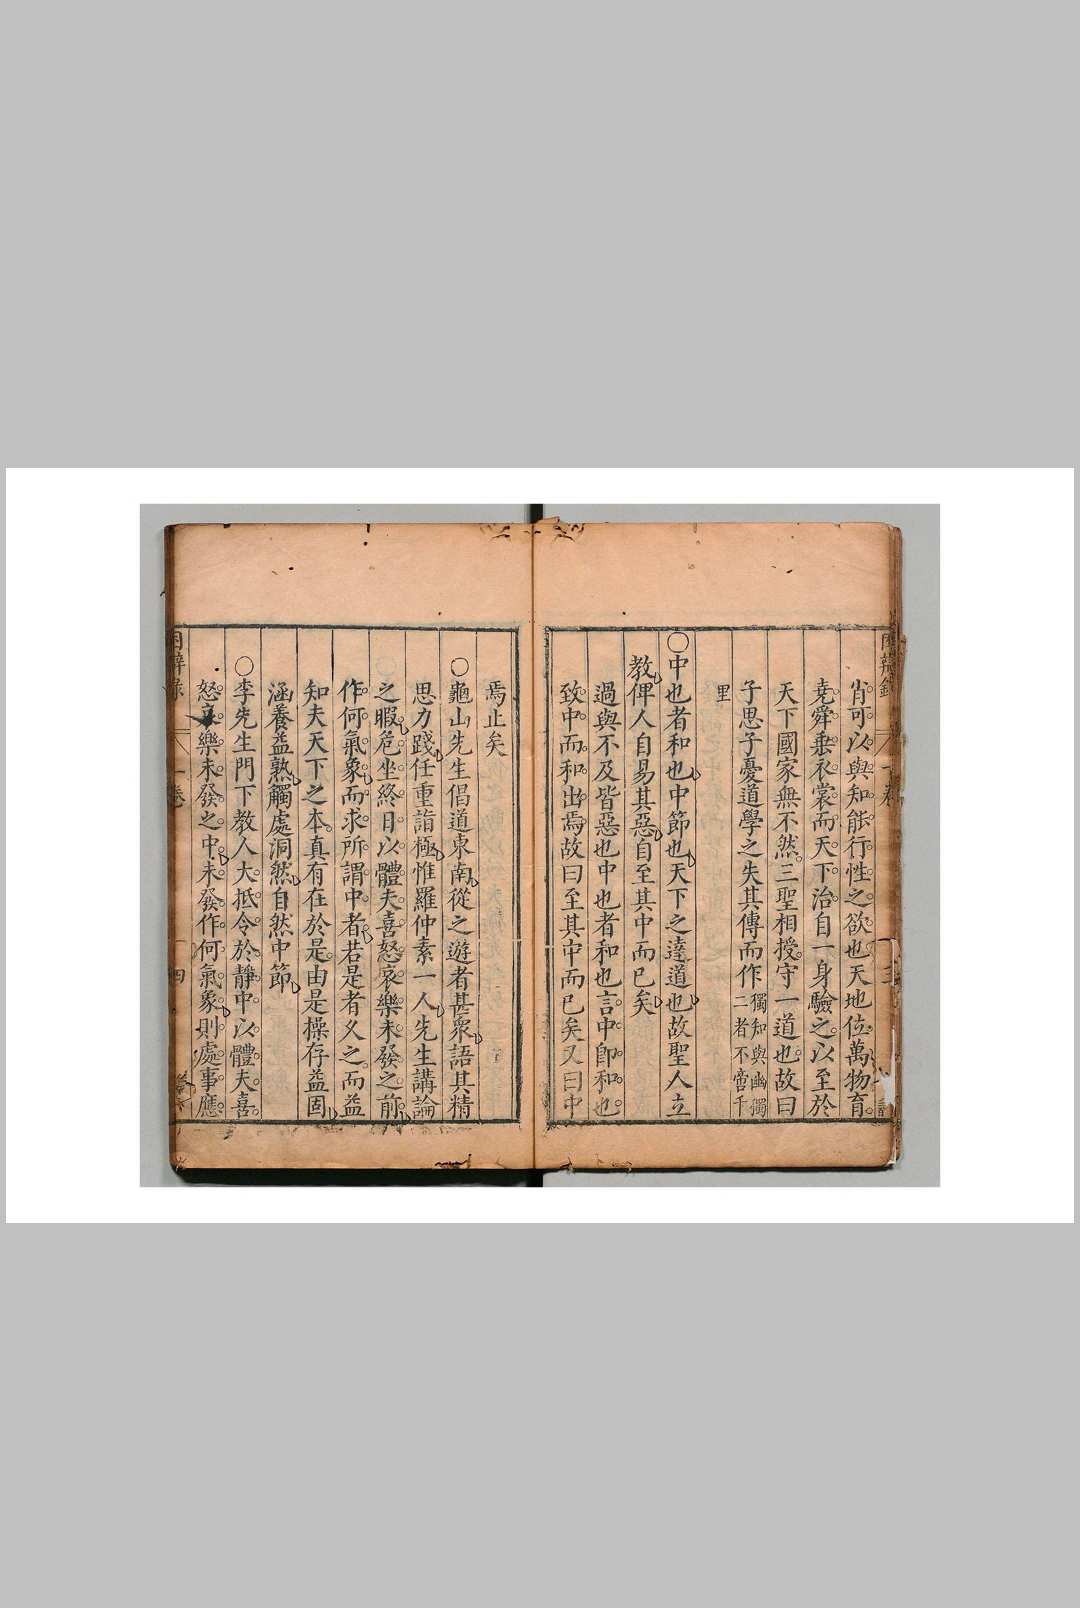 肖可以與知能行性之欲也天地位萬物育
堯舜垂衣裳而天下治自一身驗之以至於
天下國家無不然三聖相授守一道也故曰
子思子憂道學之失其傳而作獨知與幽獨
二者不啻千
里
○中也者和也中節也天下之達道也故聖人立
教俾人自易其惡自至其中而已矣
過與不及皆惡也中也者和也言中卽和也
致中而和出焉故曰至其中而已矣又曰中
焉止矣
○龜山先生倡道東南從之遊者甚衆語其精
思力踐任重詣極惟羅仲素一人先生講論
之暇危坐終日以體夫喜怒哀樂未發之前
作何氣象而求所謂中者若是者久之而益
知夫天下之本真有在於是由是操存益固
涵養益熟觸處洞然自然中節
○李先生門下教人大抵令於靜中以體夫喜
怒哀樂未發之中未發作何氣象則處事應
辯錄
一卷
四